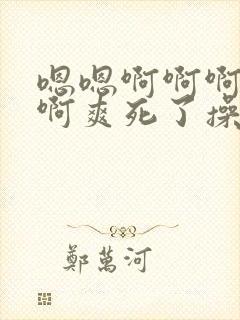 嗯嗯啊啊啊
啊爽死了操
鄭萬河